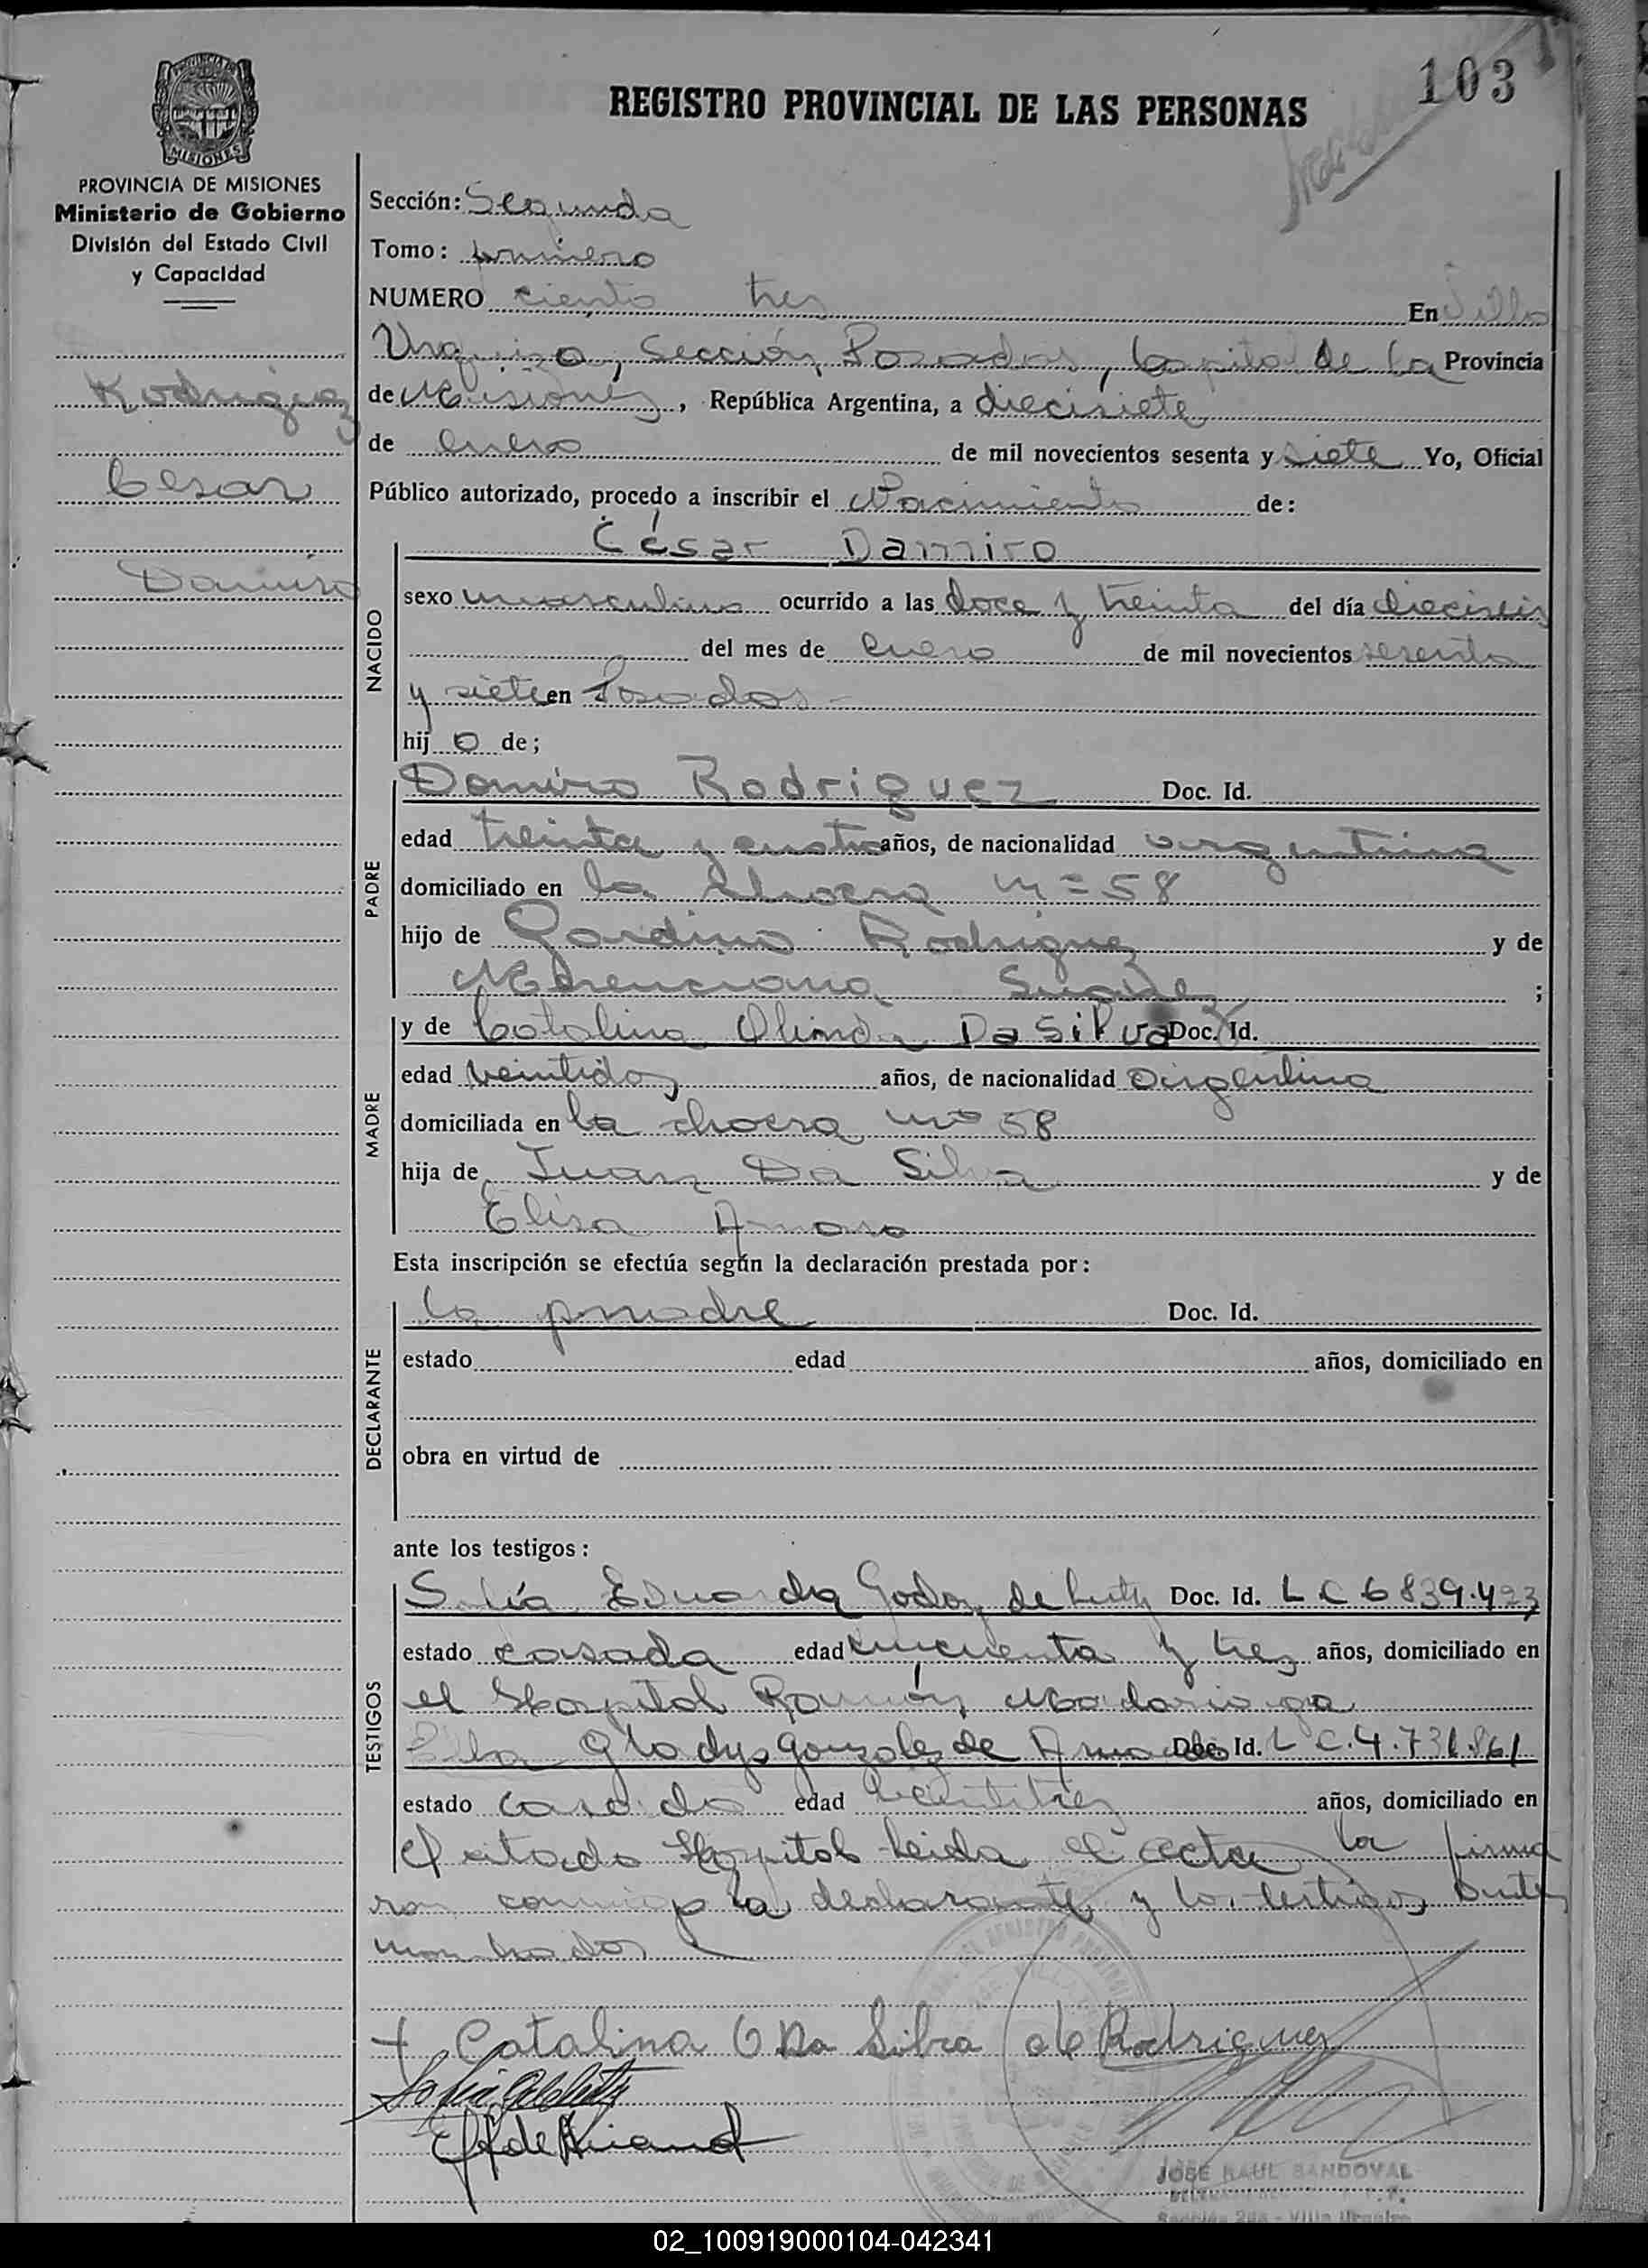 103
REGISTRO PROVINCIAL DE LAS PERSONAS
PROVINCIA DE MISIONES
Ministerio de Gobierno
División del Estado Civil
y Capacidad
Rodriguez
Cesar
Damiro
Sección: Segunda
Tomo: primero
NUMERO ciento tres En Villa
Urquiza, Sección Posadas, Capital de la Provincia
de Misiones, República Argentina, a diecisiete
de enero de mil novecientos sesenta y siete Yo, Oficial
Público autorizado, procedo a inscribir el Nacimiento de:
NACIDO
César Damiro
sexo masculino ocurrido a las doce y treinta del día dieciseis
del mes de Enero de mil novecientos sesenta
y siete en Posadas
hij o de;
PADRE
Domiro Rodriguez Doc. Id.
edad treinta y cuatro años, de nacionalidad argentina
domiciliado en la chacra nº 58
hijo de Rodriguez y de
;
MADRE
y de Catalina Olinda Da Silva Doc. Id.
edad veintidos años, de nacionalidad Argentina
domiciliada en la chacra nº 58
hija de Juan Da Silva y de
Elisa
Esta inscripción se efectúa según la declaración prestada por:
DECLARANTE
la madre Doc. Id.
estado edad años, domiciliado en
obra en virtud de
ante los testigos:
TESTIGOS
Eduarda Godoy de Doc. Id. L C 6839.493
estado casada edad cincuenta y tres años, domiciliado en
el Hospital Ramón Madariaga
Elba Gladys Gonzalez de Doc. Id. L C. 4.731.861
estado casada edad veintitres años, domiciliado en
el citado Hospital leida el acta la firma
ron conmigo la declarante y los testigos antes
nombrados
Catalina O Da Silva de Rodriguez
JOSE RAUL SANDOVAL
Sección 2da - Villa Urquiza
02_100919000104-042341